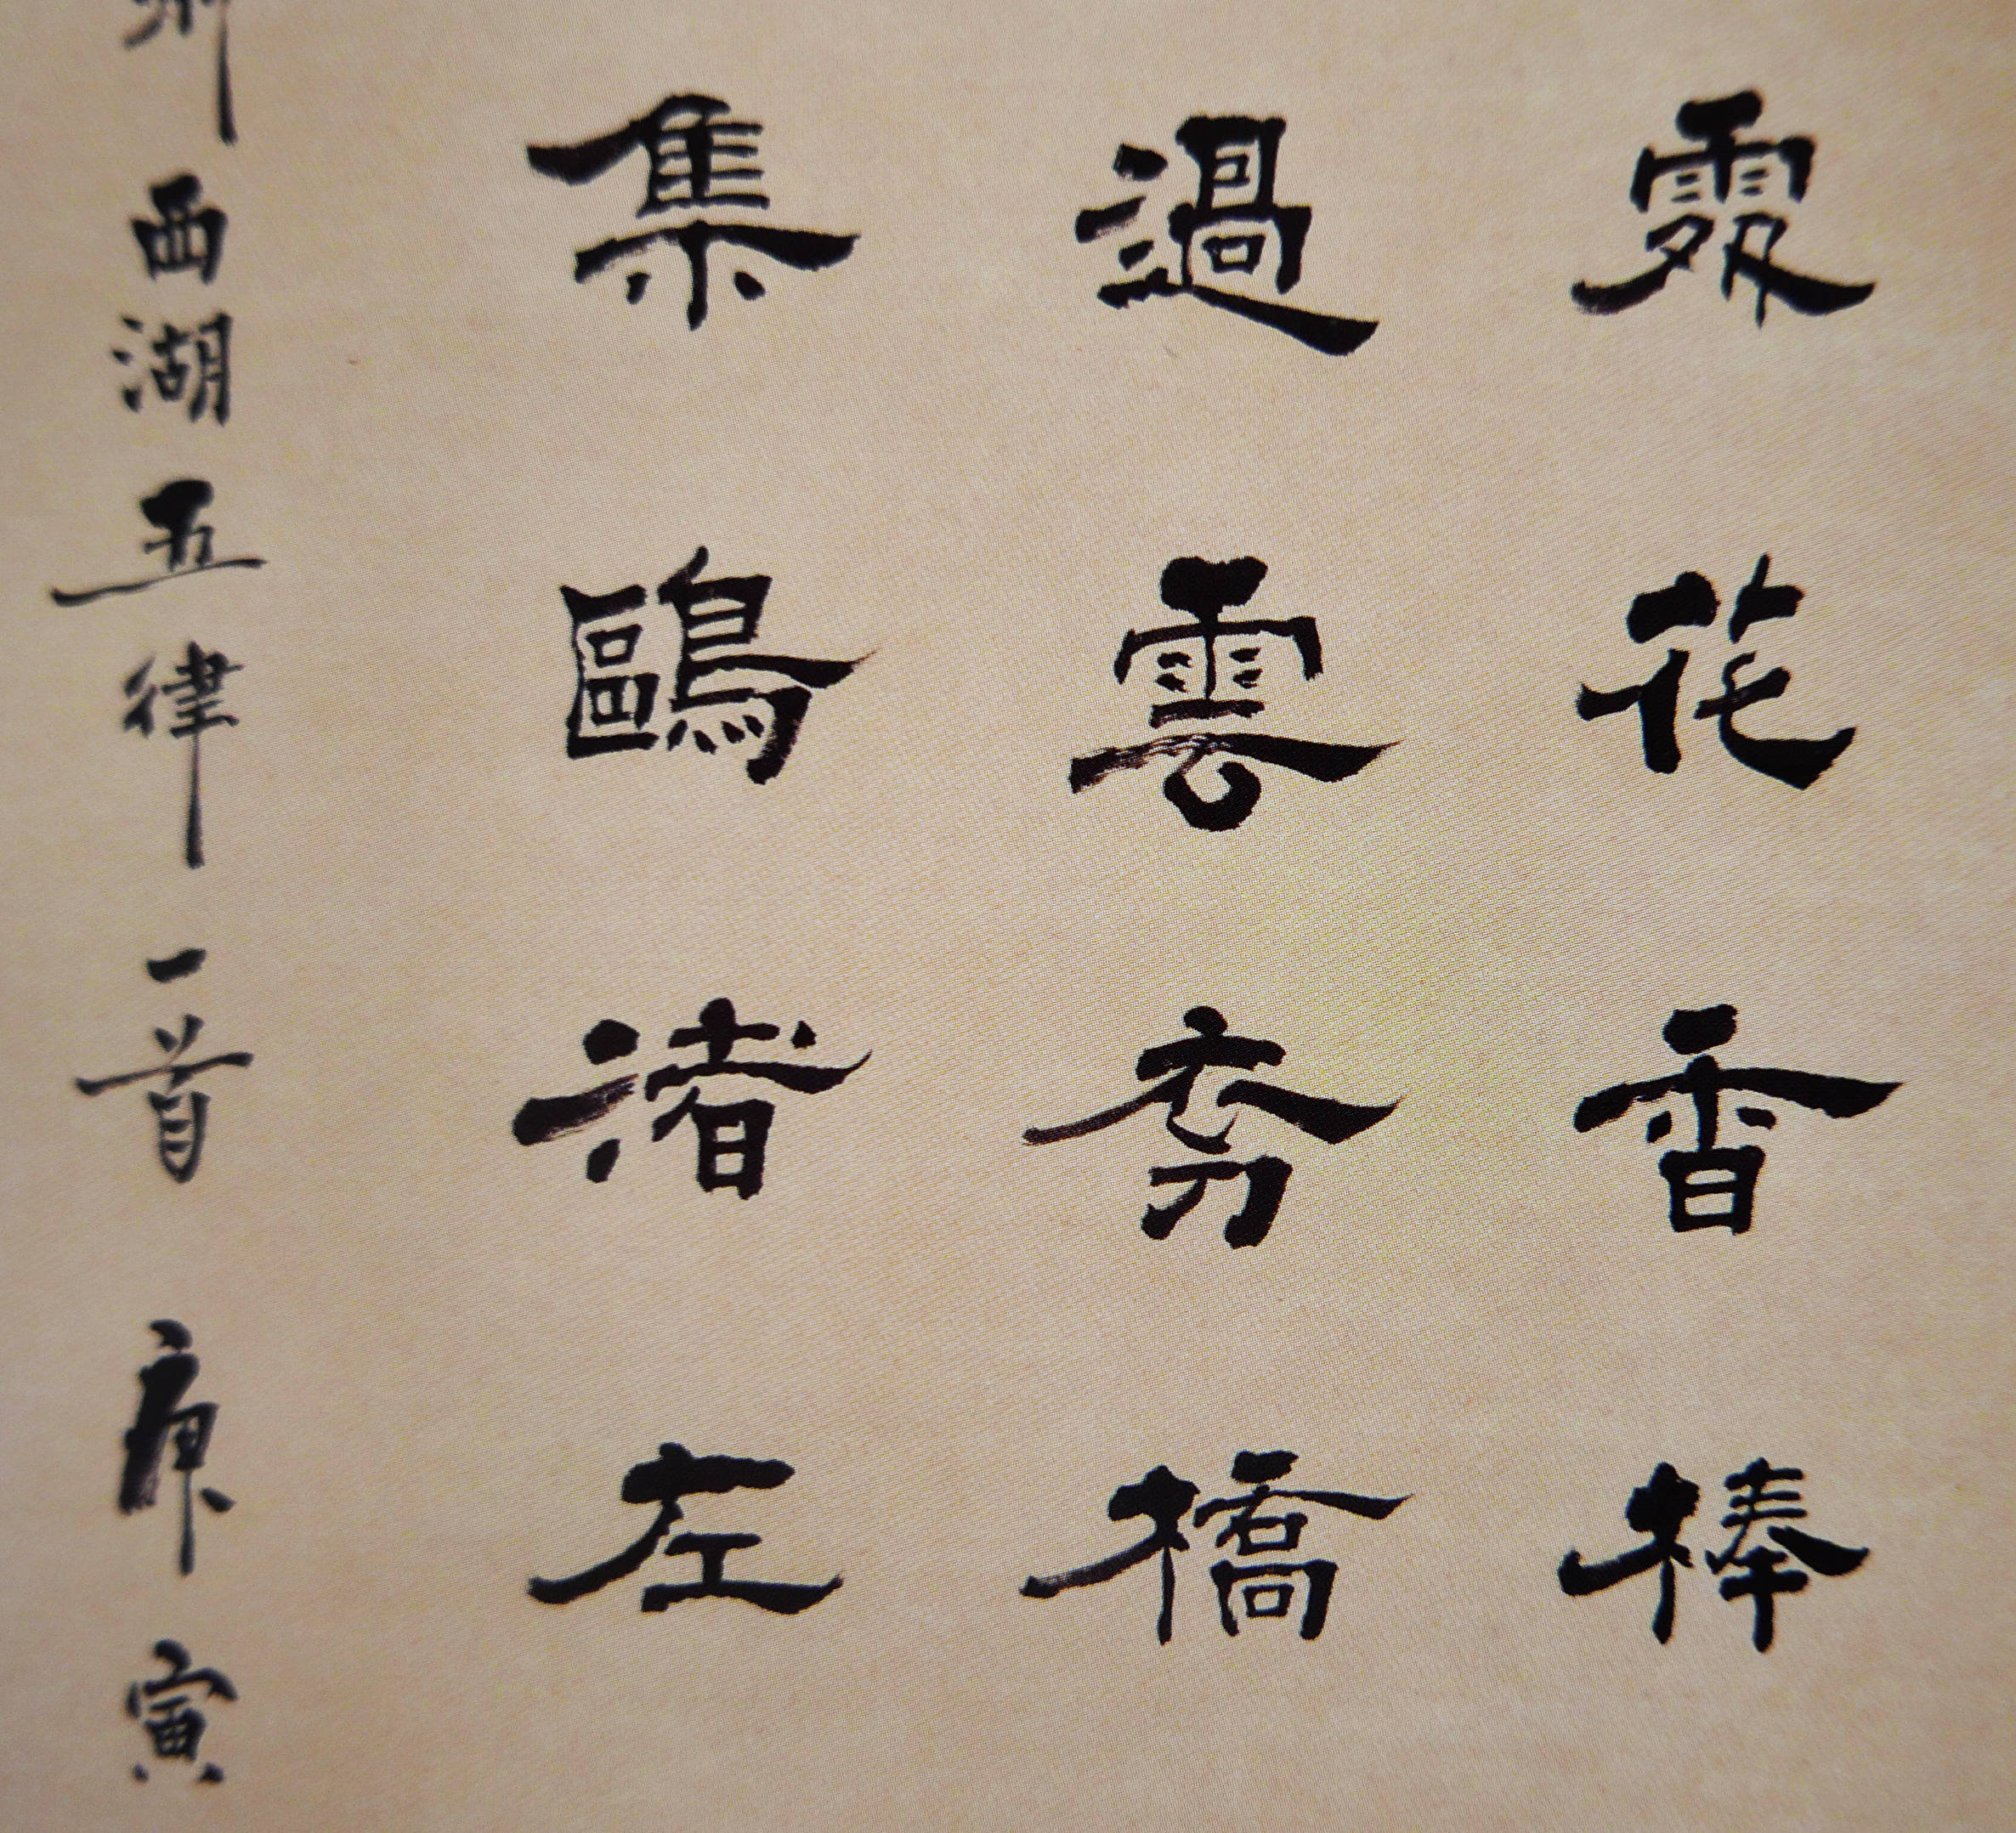 花香棒
過雲橋
集鷗渚左
西湖五律一首庚寅